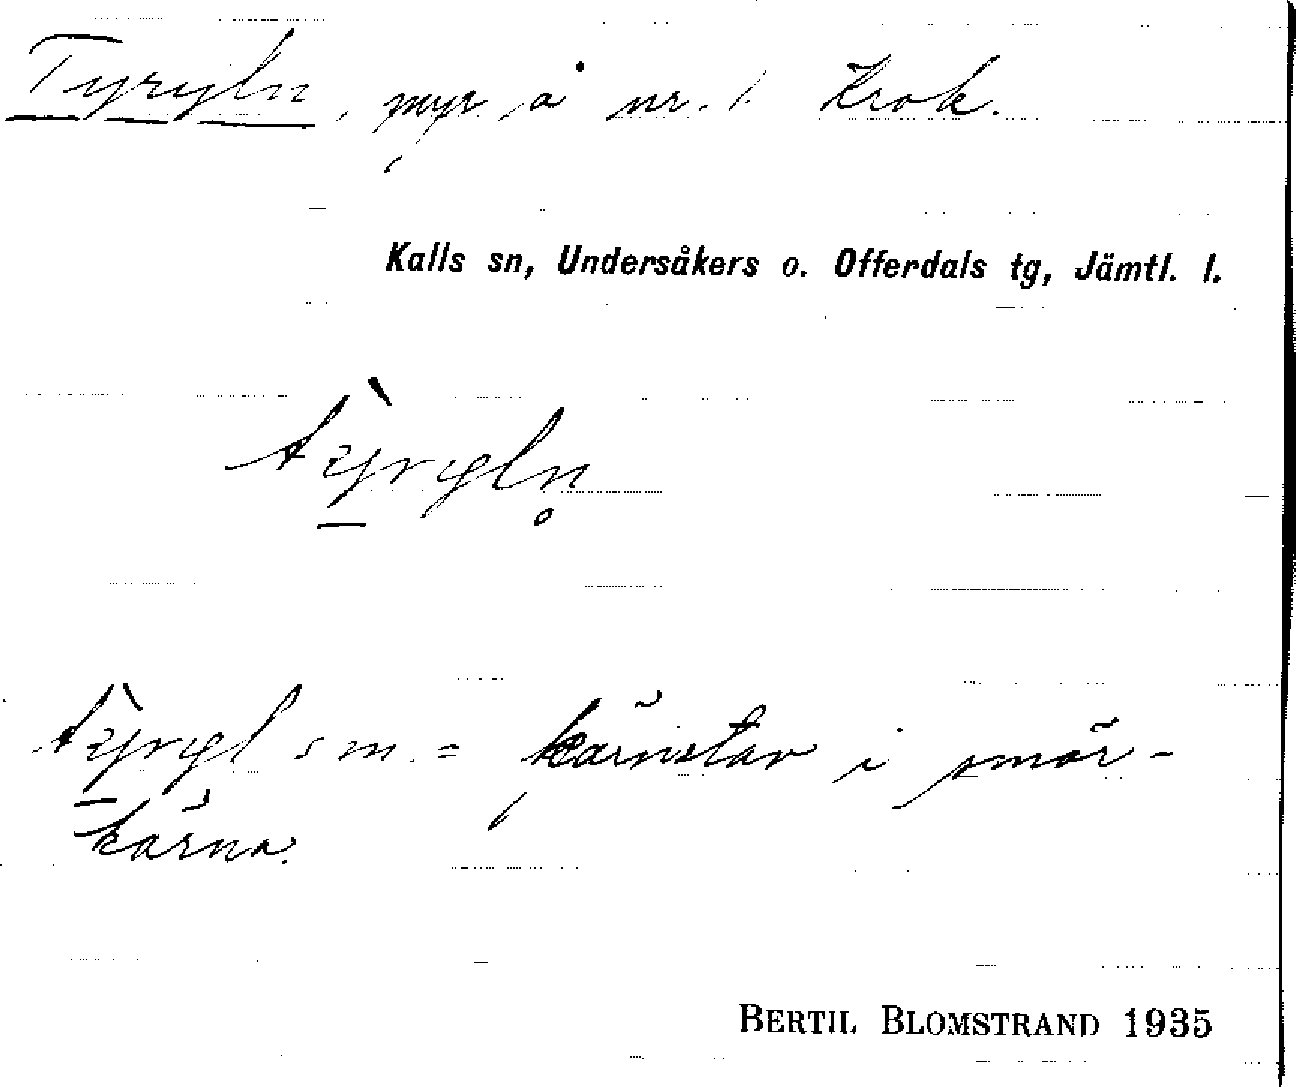 Tyryln, myr å nr. 1 Krok.
Kalls sn, Undersåkers o. Offerdals tg, Jämtl. l.
s m. = kärnstav i smör-
kärna.
BERTIL BLOMSTRAND 1935